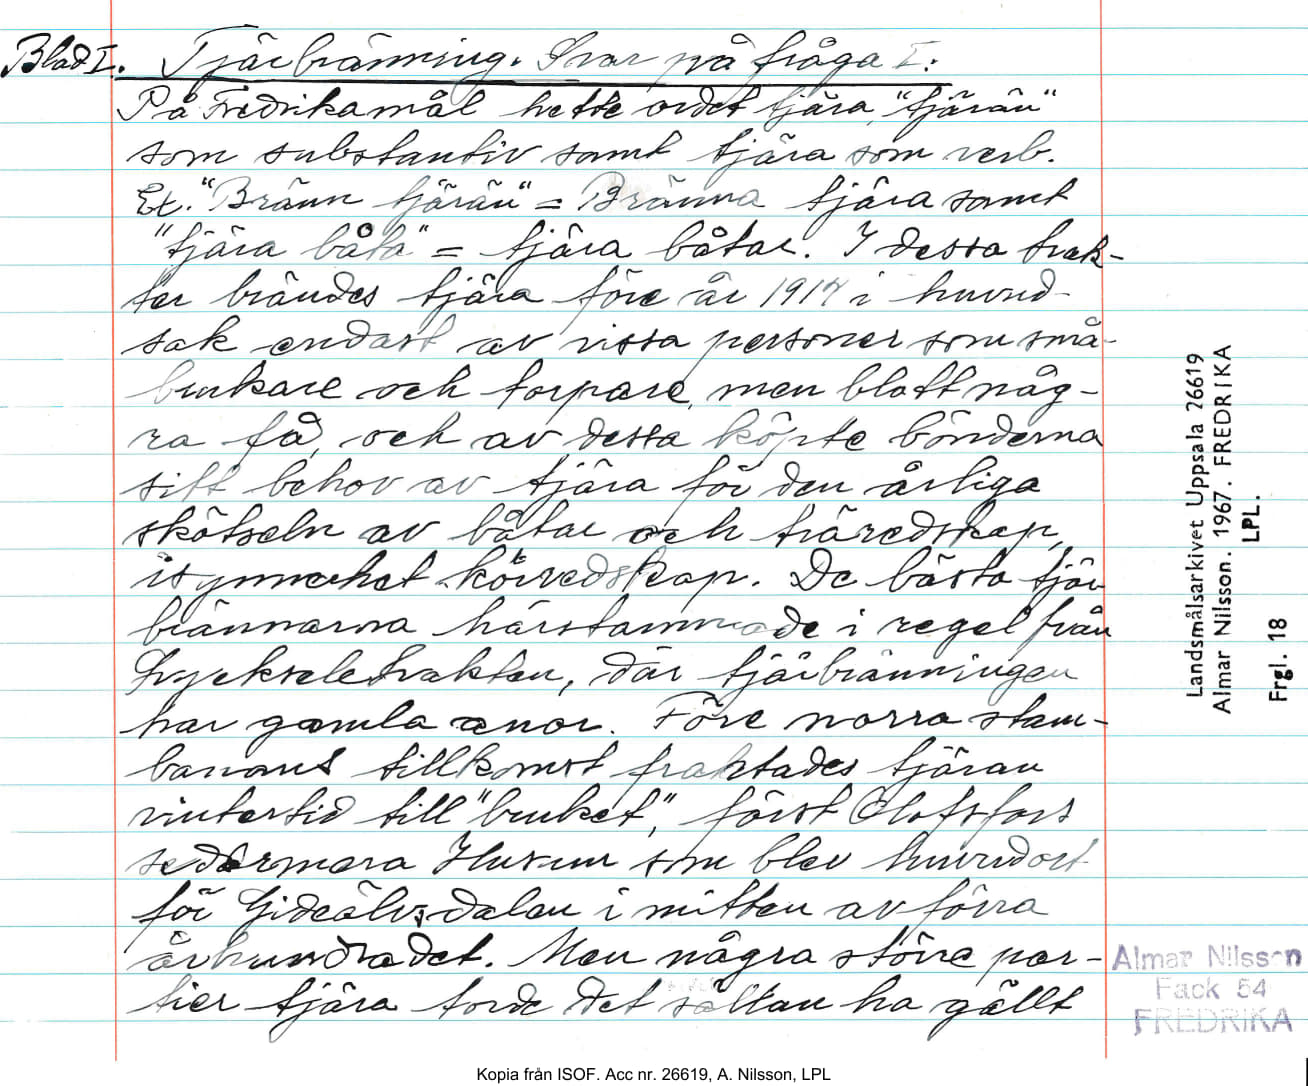 Blad I. Tjärbränning. Svar på fråga I.
På Fredrikamål hette ordet tjära, "tjärän"
som substantiv samt tjära som verb.
Ex. "Bränn tjärän" = Bränna tjära samt
"tjära båta" = tjära båtar. I dessa trak-
ter brändes tjära före år 1914 i huvud-
sak endast av vissa personer som små-
brukare och torpare, men blott någ-
ra få, och av dessa köpte bönderna
sitt behov av tjära för den årliga
skötseln av båtar och träredskap,
isynnerhet körredskap. De bästa tjär
brännarna härstammade i regel från
Lycksele trakten, där tjärbränningen
har gamla anor. Före norra stam-
banans tillkomst fraktades tjäran
vintertid till "bruket", först Olofsfors
sedermera Husum som blev huvudort
för Gideälvsdalen i mitten av förra
århundradet. Men några större par-
tier tjära torde det sällan ha gällt
Landsmålsarkivet Uppsala 26619
Almar Nilsson. 1967. FREDRIKA
LPL.
Frgl. 18
Almar Nilsson
Fack 54
FREDRIKA
Kopia från ISOF. Acc nr. 26619, A. Nilsson, LPL